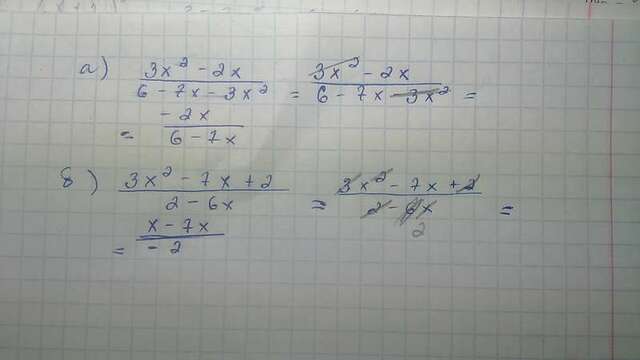 а) 3x² - 2x / 6 - 7x - 3x² = 3x² - 2x / 6 - 7x - 3x² =
= -2x / 6 - 7x
в) 3x² - 7x + 2 / 2 - 6x = 3x² - 7x + 2 / 2 - 6x 2 =
= x - 7x / -2